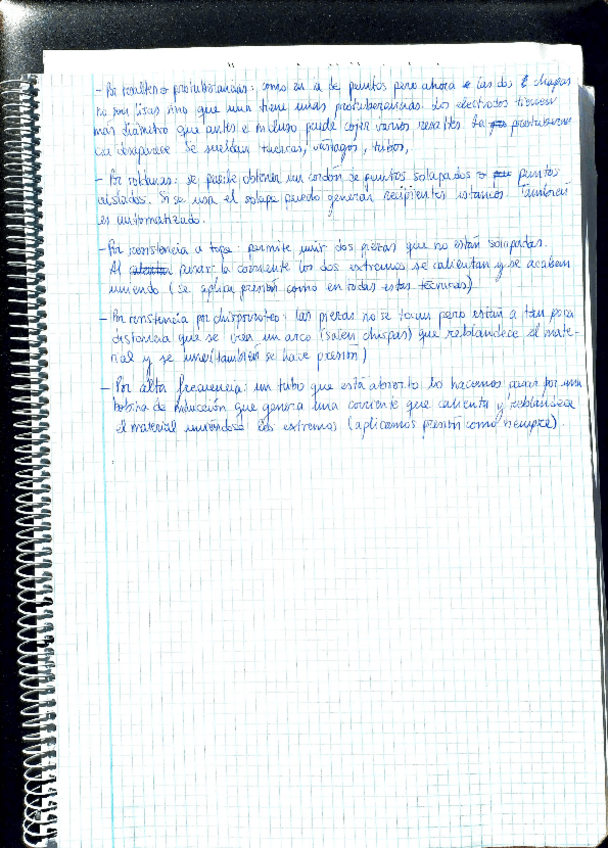 - Por resaltes o protuberancias: como en la de puntos pero ahora las dos chapas
no son lisas sino que una tiene unas protuberancias. Los electrodos tienen
más diámetro que antes e incluso puede coger varios resaltes. La protuberan
cia desaparece. Se sueldan tuercas, vástagos, tubos,
- Por roldanas: se puede obtener un cordón de puntos solapados o puntos
aislados. Si se usa el solape puedo generar recipientes estancos. También
es automatizado.
- Por resistencia a tope: permite unir dos piezas que no están solapadas.
Al pasar la corriente los dos extremos se calientan y se acaban
uniendo (se aplica presión como en todas estas técnicas)
- Por resistencia por chisporroteo: las piezas no se tocan pero están a tan poca
distancia que se crea un arco (salen chispas) que reblandece el mate-
rial y se unen (también se hace presión)
- Por alta frecuencia: un tubo que está abierto lo hacemos pasar por una
bobina de inducción que genera una corriente que calienta y reblandece
el material uniéndose los extremos (aplicamos presión como siempre).